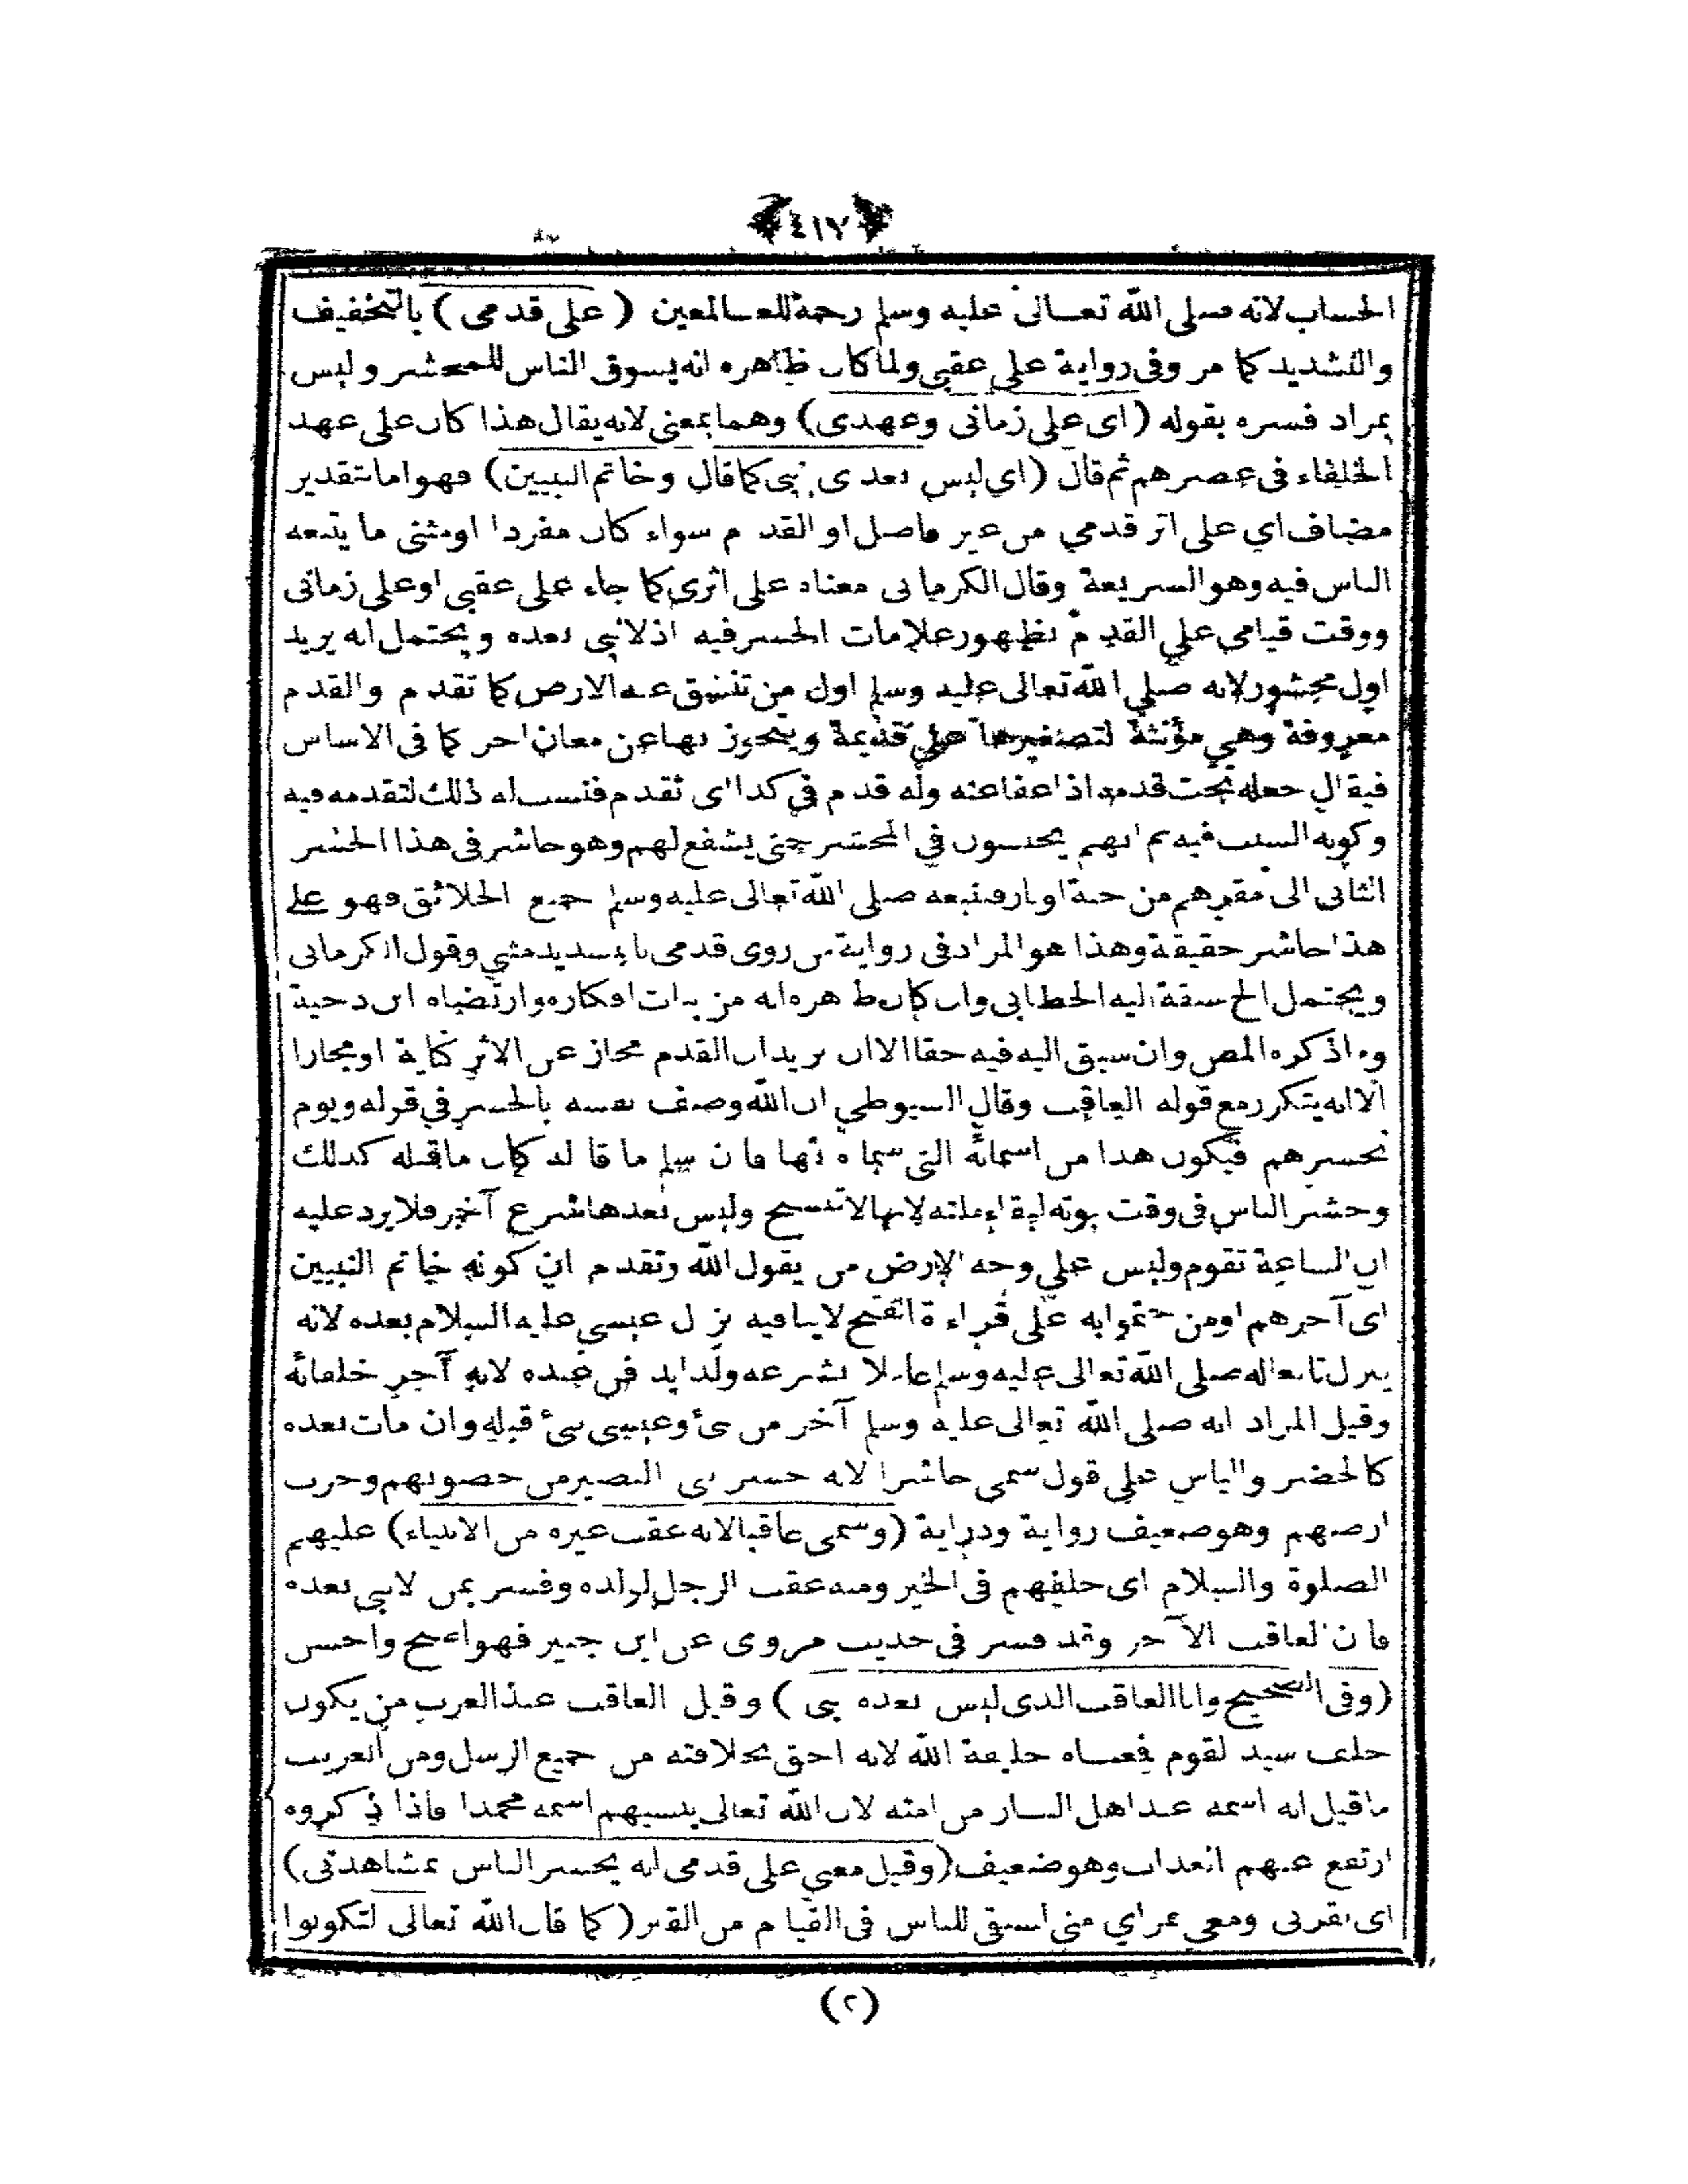 ﴿٤١٧﴾
الحساب لانه صلى الله تعالى عليه وسلم رحمة للعالمين (على قدمى) بالتخفيف
والتشديد كما مر وفى رواية على عقبى ولما كان ظاهره انه يسوق الناس للمحشر وليس
بمراد فسره بقوله (اى على زمانى وعهدى) وهما بمعنى لانه يقال هذا كان على عهد
الخلفاء فى عصرهم ثم قال (اي ليس بعدى نبى كما قال وخاتم النبيين) فهو اما بتقدير
مضاف اي على اثر قدمي من غير فاصل او القدم سواء كان مفردا او مثنى ما يتبعه
الناس فيه وهو الشريعة وقال الكرمانى معناه على اثرى كما جاء على عقبى او على زمانى
ووقت قيامى علي القدم بظهور علامات الحشر فيه اذ لا نبى بعده ويحتمل انه يريد
اول محشور لانه صلي الله تعالى عليه وسلم اول من تنشق عنه الارض كما تقدم والقدم
معروفة وهي مؤنثة لتصغيرها على قديمة ويتجوز بها عن معان اخر كما فى الاساس
فيقال جعله تحت قدمه اذا عفا عنه وله قدم في كذا اى تقدم فنسب له ذلك لتقدمه فيه
وكونه السبب فيه ثم انهم يحبسون في المحشر حتى يشفع لهم وهو حاشر فى هذا الحشر
الثانى الى مقرهم من جنة او نار فيتبعه صلى الله تعالى عليه وسلم جميع الخلائق فهو على
هذا حاشر حقيقة وهذا هو المراد فى رواية من روى قدمى بالتشديد مثنى وقول الكرمانى
ويحتمل الخ سبقه اليه الخطابى وان كان ظاهره انه من بنات افكاره وارتضاه ابن دحية
وما ذكره المص وان سبق اليه فيه خفا الا ان يريد ان القدم مجاز عن الاثر كناية او مجازا
الا انه يتكرر مع قوله العاقب وقال السيوطي ان الله وصف نفسه بالحشر في قوله ويوم
نحشرهم فيكون هذا من اسمائه التى سماه بها فان سلم ما قاله كان ما قبله كذلك
وحشر الناس فى وقت نبوته لبقاء ملته لانها لا تنسخ وليس بعدها شرع آخر فلا يرد عليه
ان الساعة تقوم وليس علي وجه الارض من يقول الله وتقدم ان كونه خاتم النبيين
اى آخرهم او من ختموا به على قراءة الفتح لا ينافيه نزول عيسي عليه السلام بعده لانه
ينزل تابعا له صلى الله تعالى عليه وسلم عاملا بشرعه ولذا يدفن عنده لانه آخر خلفائه
وقيل المراد انه صلى الله تعالى عليه وسلم آخر من نبئ وعيسى نبئ قبله وان مات بعده
كالخضر والياس على قول سمى حاشرا لانه حشر بنى النضير من حصونهم وخرب
ارضهم وهو ضعيف رواية ودراية (وسمى عاقبا لانه عقب غيره من الانبياء) عليهم
الصلوة والسلام اى خلفهم فى الخير ومنه عقب الرجل لولده وفسر بمن لا نبى بعده
فان العاقب الآخر وقد فسر فى حديث مروى عن ابن جبير فهو اصح واحسن
(وفى الصحيح وانا العاقب الذى ليس بعده نبى) وقيل العاقب عند العرب من يكون
خلف سيد لقوم فمعناه خليفة الله لانه احق بخلافته من جميع الرسل ومن الغريب
ما قيل انه اسمه عند اهل النار من امته لان الله تعالى ينسيهم اسمه محمدا فاذا ذكروه
ارتفع عنهم العذاب وهو ضعيف (وقيل معنى على قدمى انه يحشر الناس بمشاهدتى)
اى بقربى ومعى بمراي منى اسبق للناس فى القيام من القبر (كما قال الله تعالى لتكونوا
(٢)